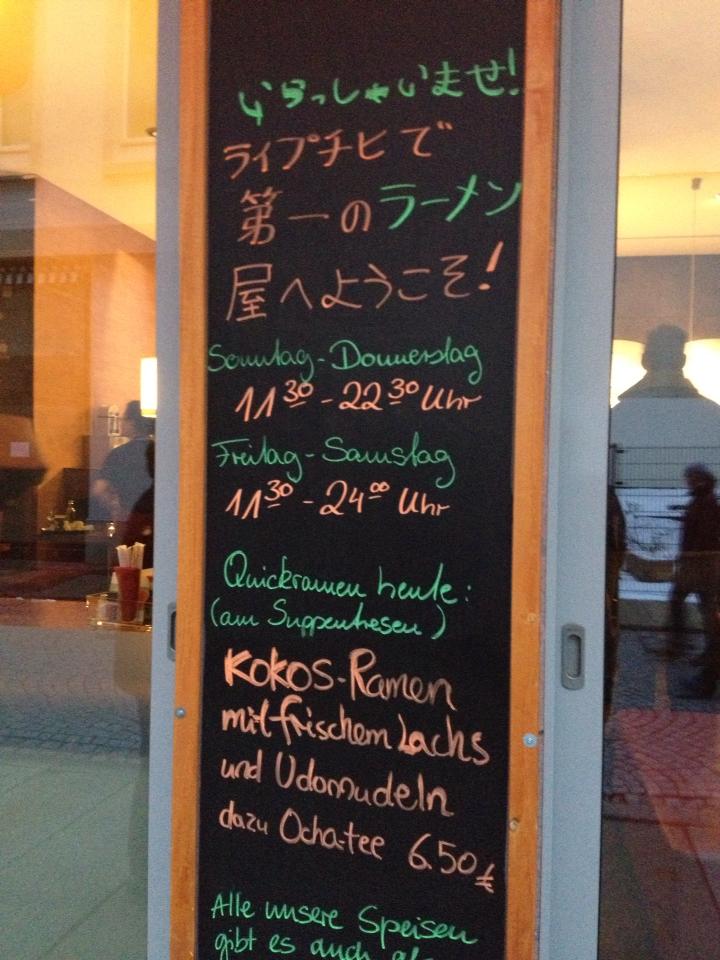 いらっしゃいませ!
ライプチヒで
第一のラーメン
屋へようこそ!
Sonntag - Donnerstag
11³⁰ - 22³⁰ Uhr
Freitag - Samstag
11³⁰ - 24⁰⁰ Uhr
Quickramen heute:
(am Suppentresen)
Kokos-Ramen
mit frischem Lachs
und Udonnudeln
dazu Ocha-tee 6.50€
Alle unsere Speisen
gibt es auch